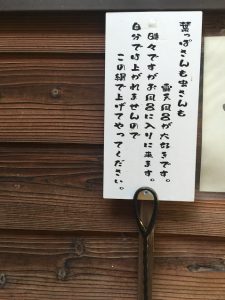 葉っぱさんも虫さんも
露天風呂が大好きです。
時々ですがお風呂に入りに来ます。
自分では上がれませんので
この網で上げてやってください。